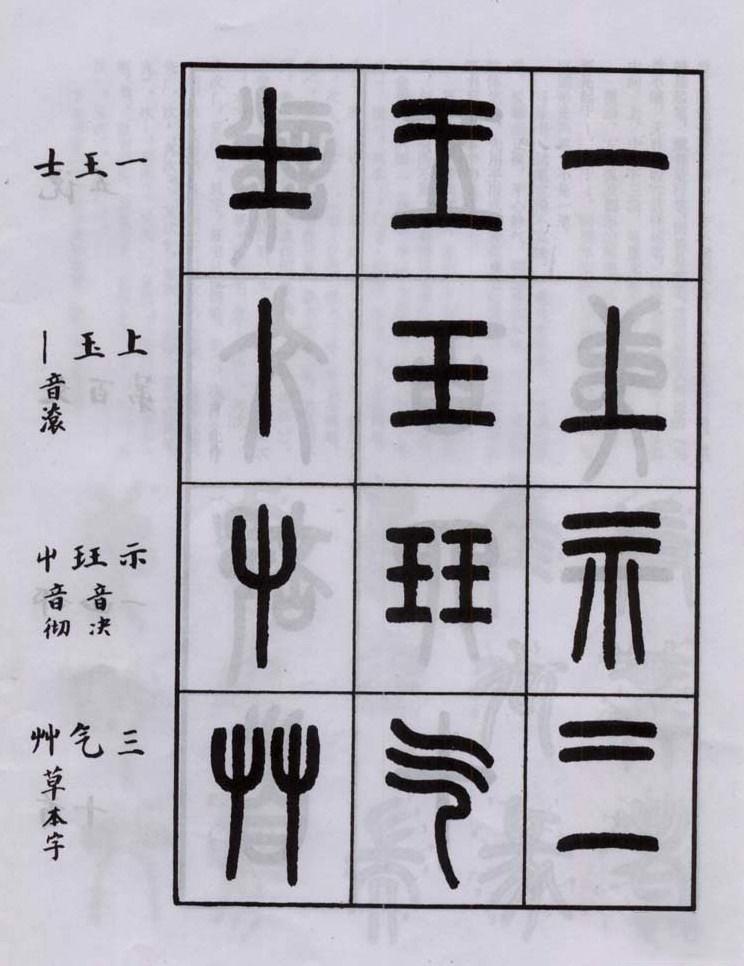 一
上
示
三
王
玉
玨
气
士
丨
屮
艸
一 上 示 三
王 玉 玨音决 气
士 丨音滚 屮音彻 艸草本字